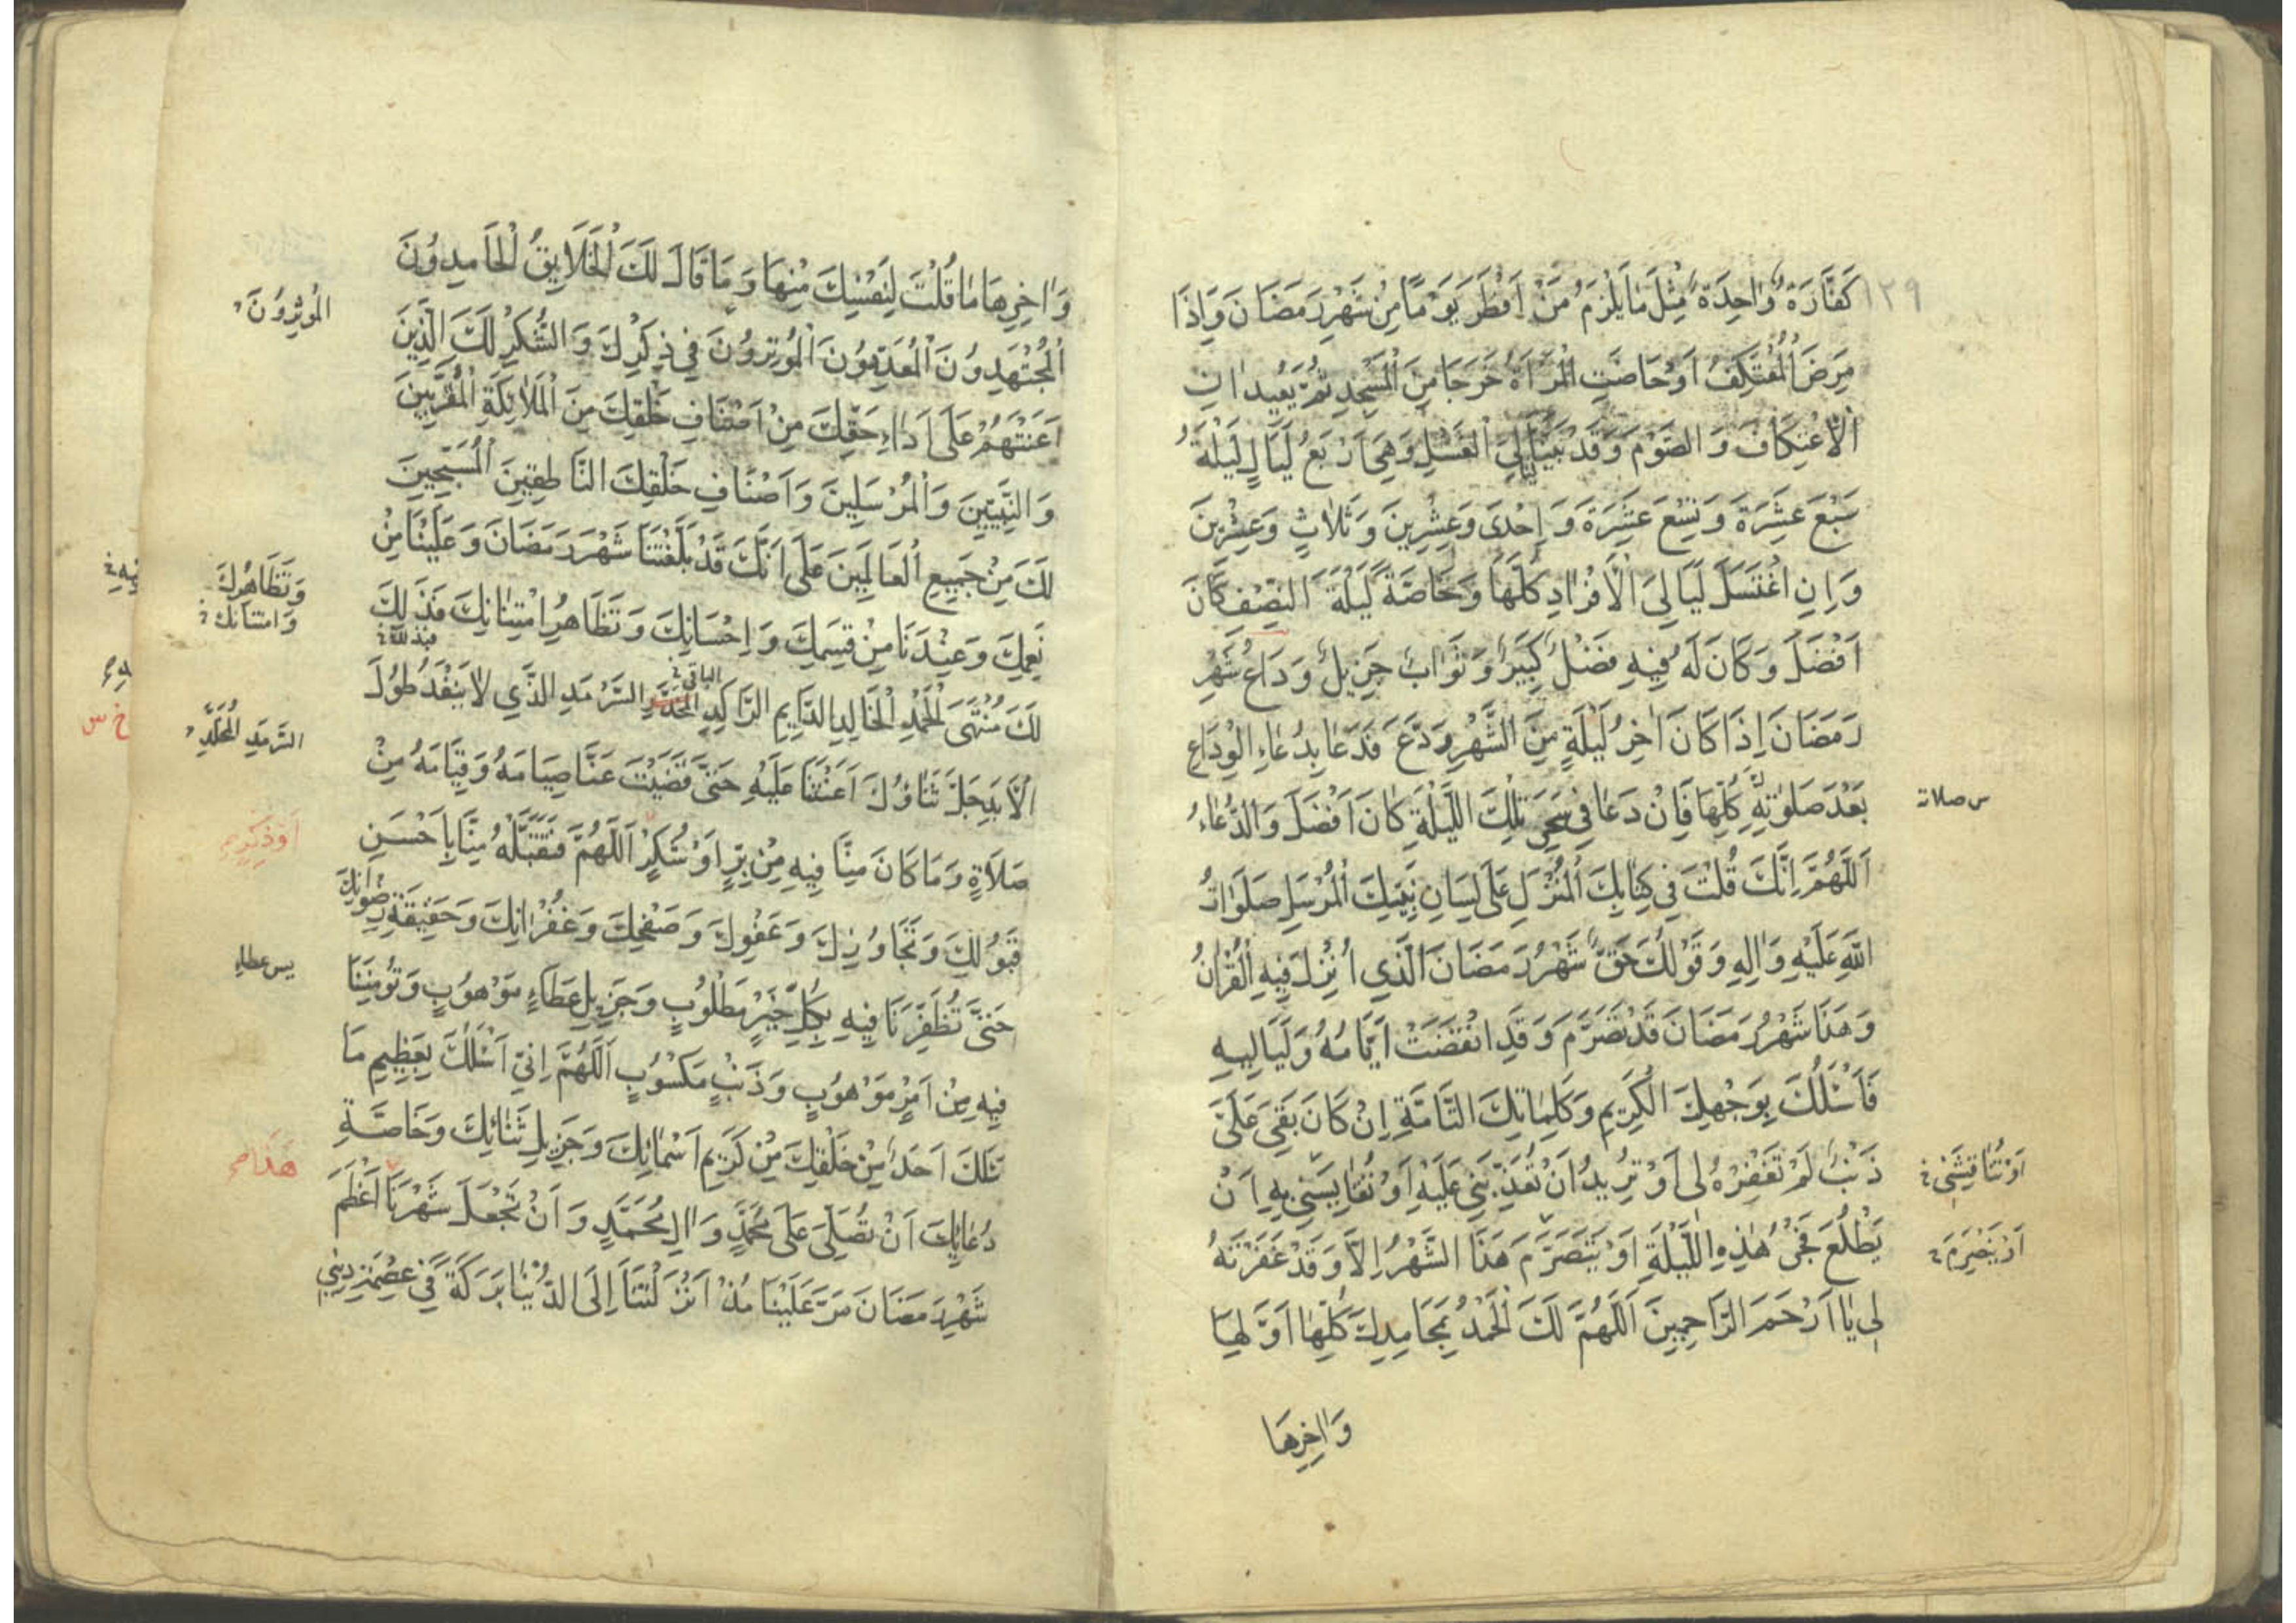 ١٢٩
كَفَّارَةٌ وَاحِدَةٌ مِثْلَ مَا يَلْزَمُ مَنْ اَفْطَرَ يَوْمًا مِنْ شَهْرِ رَمَضَانَ وَاِذَا
مَرِضَ الْمُعْتَكِفُ اَوْ حَاضَتِ الْمَرْاَةُ خَرَجَا مِنَ الْمَسْجِدِ ثُمَّ يُعِيدَانِ
الْاِعْتِكَافَ وَالصَّوْمَ وَقَدْ بَيَّنَّا لَيَالِيَ الْغُسْلِ وَهِيَ اَرْبَعُ لَيَالٍ لَيْلَةُ
سَبْعَ عَشَرَةَ وَتِسْعَ عَشَرَةَ وَاِحْدَى وَعِشْرِينَ وَثَلَاثٍ وَعِشْرِينَ
وَاِنِ اغْتَسَلَ لَيَالِيَ الْاَفْرَادِ كُلَّهَا وَخَاصَّةً لَيْلَةَ النِّصْفِ كَانَ
اَفْضَلَ وَكَانَ لَهُ فِيهِ فَضْلٌ كَبِيرٌ وَثَوَابٌ جَزِيلٌ وَدَاعُ شَهْرِ
رَمَضَانَ اِذَا كَانَ اٰخِرُ لَيْلَةٍ مِنَ الشَّهْرِ وَدَّعَ فَدَعَا بِدُعَاءِ الْوَدَاعِ
بَعْدَ صَلَوٰتِهِ كُلِّهَا فَاِنْ دَعَا فِي سَحَرِ تِلْكَ اللَّيْلَةِ كَانَ اَفْضَلَ وَالدُّعَاءُ
س صلاته
اَللّٰهُمَّ اِنَّكَ قُلْتَ فِي كِتَابِكَ الْمُنْزَلِ عَلَى لِسَانِ نَبِيِّكَ الْمُرْسَلِ صَلَوَاتُ
اللّٰهِ عَلَيْهِ وَاٰلِهِ وَقَوْلُكَ حَقٌّ شَهْرُ رَمَضَانَ الَّذِي اُنْزِلَ فِيهِ الْقُرْاٰنُ
وَهَذَا شَهْرُ رَمَضَانَ قَدْ تَصَرَّمَ وَقَدِ انْقَضَتْ اَيَّامُهُ وَلَيَالِيهِ
فَاَسْئَلُكَ بِوَجْهِكَ الْكَرِيمِ وَكَلِمَاتِكَ التَّامَّةِ اِنْ كَانَ بَقِيَ عَلَيَّ
ذَنْبٌ لَمْ تَغْفِرْهُ لِى اَوْ تُرِيدُ اَنْ تُعَذِّبَنِي عَلَيْهِ اَوْ تُقَايِسَنِي بِهِ اَنْ
اَوْ تُنَاقِشَنِي
يَطْلُعَ فَجْرُ هٰذِهِ اللَّيْلَةِ اَوْ يَتَصَرَّمَ هَذَا الشَّهْرُ اِلَّا وَقَدْ غَفَرْتَهُ
لِى يَا اَرْحَمَ الرَّاحِمِينَ اَللّٰهُمَّ لَكَ الْحَمْدُ بِمَحَامِدِكَ كُلِّهَا اَوَّلِهَا
وَاٰخِرِهَا
وَاٰخِرِهَا مَا قُلْتَ لِنَفْسِكَ مِنْهَا وَمَا قَالَ لَكَ الْخَلَايِقُ الْحَامِدُونَ
الْمُجْتَهِدُونَ الْمُعَدِّدُونَ الْمُوثِرُونَ فِي ذِكْرِكَ وَالشُّكْرِ لَكَ الَّذِينَ
الْمُوثِرُونَ
اَعَنْتَهُمْ عَلَى اَدَاءِ حَقِّكَ مِنْ اَصْنَافِ خَلْقِكَ مِنَ الْمَلَائِكَةِ الْمُقَرَّبِينَ
وَالنَّبِيِّينَ وَالْمُرْسَلِينَ وَاَصْنَافِ خَلْقِكَ النَّاطِقِينَ الْمُسَبِّحِينَ
لَكَ مِنْ جَمِيعِ الْعَالَمِينَ عَلَى اَنَّكَ قَدْ بَلَّغْتَنَا شَهْرَ رَمَضَانَ وَعَلَيْنَا مِنْ
نِعَمِكَ وَعِنْدَنَا مِنْ قِسَمِكَ وَاِحْسَانِكَ وَتَظَاهُرِ امْتِنَانِكَ فَذَلِكَ
وَتَظَاهُرِكَ
وَامتنانك
فبذلك
لَكَ مُنْتَهَى الْحَمْدِ الْخَالِدِ الدَّايِمِ الرَّاكِدِ الْمُخَلَّدِ السَّرْمَدِ الَّذِي لَا يَنْفَدُ طُولَ
الباقى
السَّرْمَدِ الْمُخَلَّدِ
الْاَبَدِ جَلَّ ثَنَاؤُكَ اَعَنْتَنَا عَلَيْهِ حَتَّى قَضَيْتَ عَنَّا صِيَامَهُ وَقِيَامَهُ مِنْ
صَلَاةٍ وَمَا كَانَ مِنَّا فِيهِ مِنْ بِرٍّ اَوْ شُكْرٍ اَللّٰهُمَّ فَتَقَبَّلْهُ مِنَّا بِاَحْسَنِ
قَبُولِكَ وَتَجَاوُزِكَ وَعَفْوِكَ وَصَفْحِكَ وَغُفْرَانِكَ وَحَقِيقَةِ رِضْوَانِكَ
حَتَّى تُظَفِّرَنَا فِيهِ بِكُلِّ خَيْرٍ مَطْلُوبٍ وَجَزِيلِ عَطَاءٍ مَوْهُوبٍ وَتُوْمِنَنَا
فِيهِ مِنْ اَمْرٍ مَوْهُوبٍ وَذَنْبٍ مَكْسُوبٍ اَللّٰهُمَّ اِنِّي اَسْئَلُكَ بِعَظِيمِ مَا
سَئَلَكَ اَحَدٌ مِنْ خَلْقِكَ مِنْ كَرِيمِ اَسْمَائِكَ وَجَزِيلِ ثَنَائِكَ وَخَاصَّةِ
دُعَائِكَ اَنْ تُصَلِّيَ عَلَى مُحَمَّدٍ وَاٰلِ مُحَمَّدٍ وَاَنْ تَجْعَلَ شَهْرَنَا اَعْظَمَ
هَذَا
شَهْرِ رَمَضَانَ مَرَّ عَلَيْنَا مُنْذُ اَنْزَلْتَنَا اِلَى الدُّنْيَا بَرَكَةً فِي عِصْمَةِ دِينِي